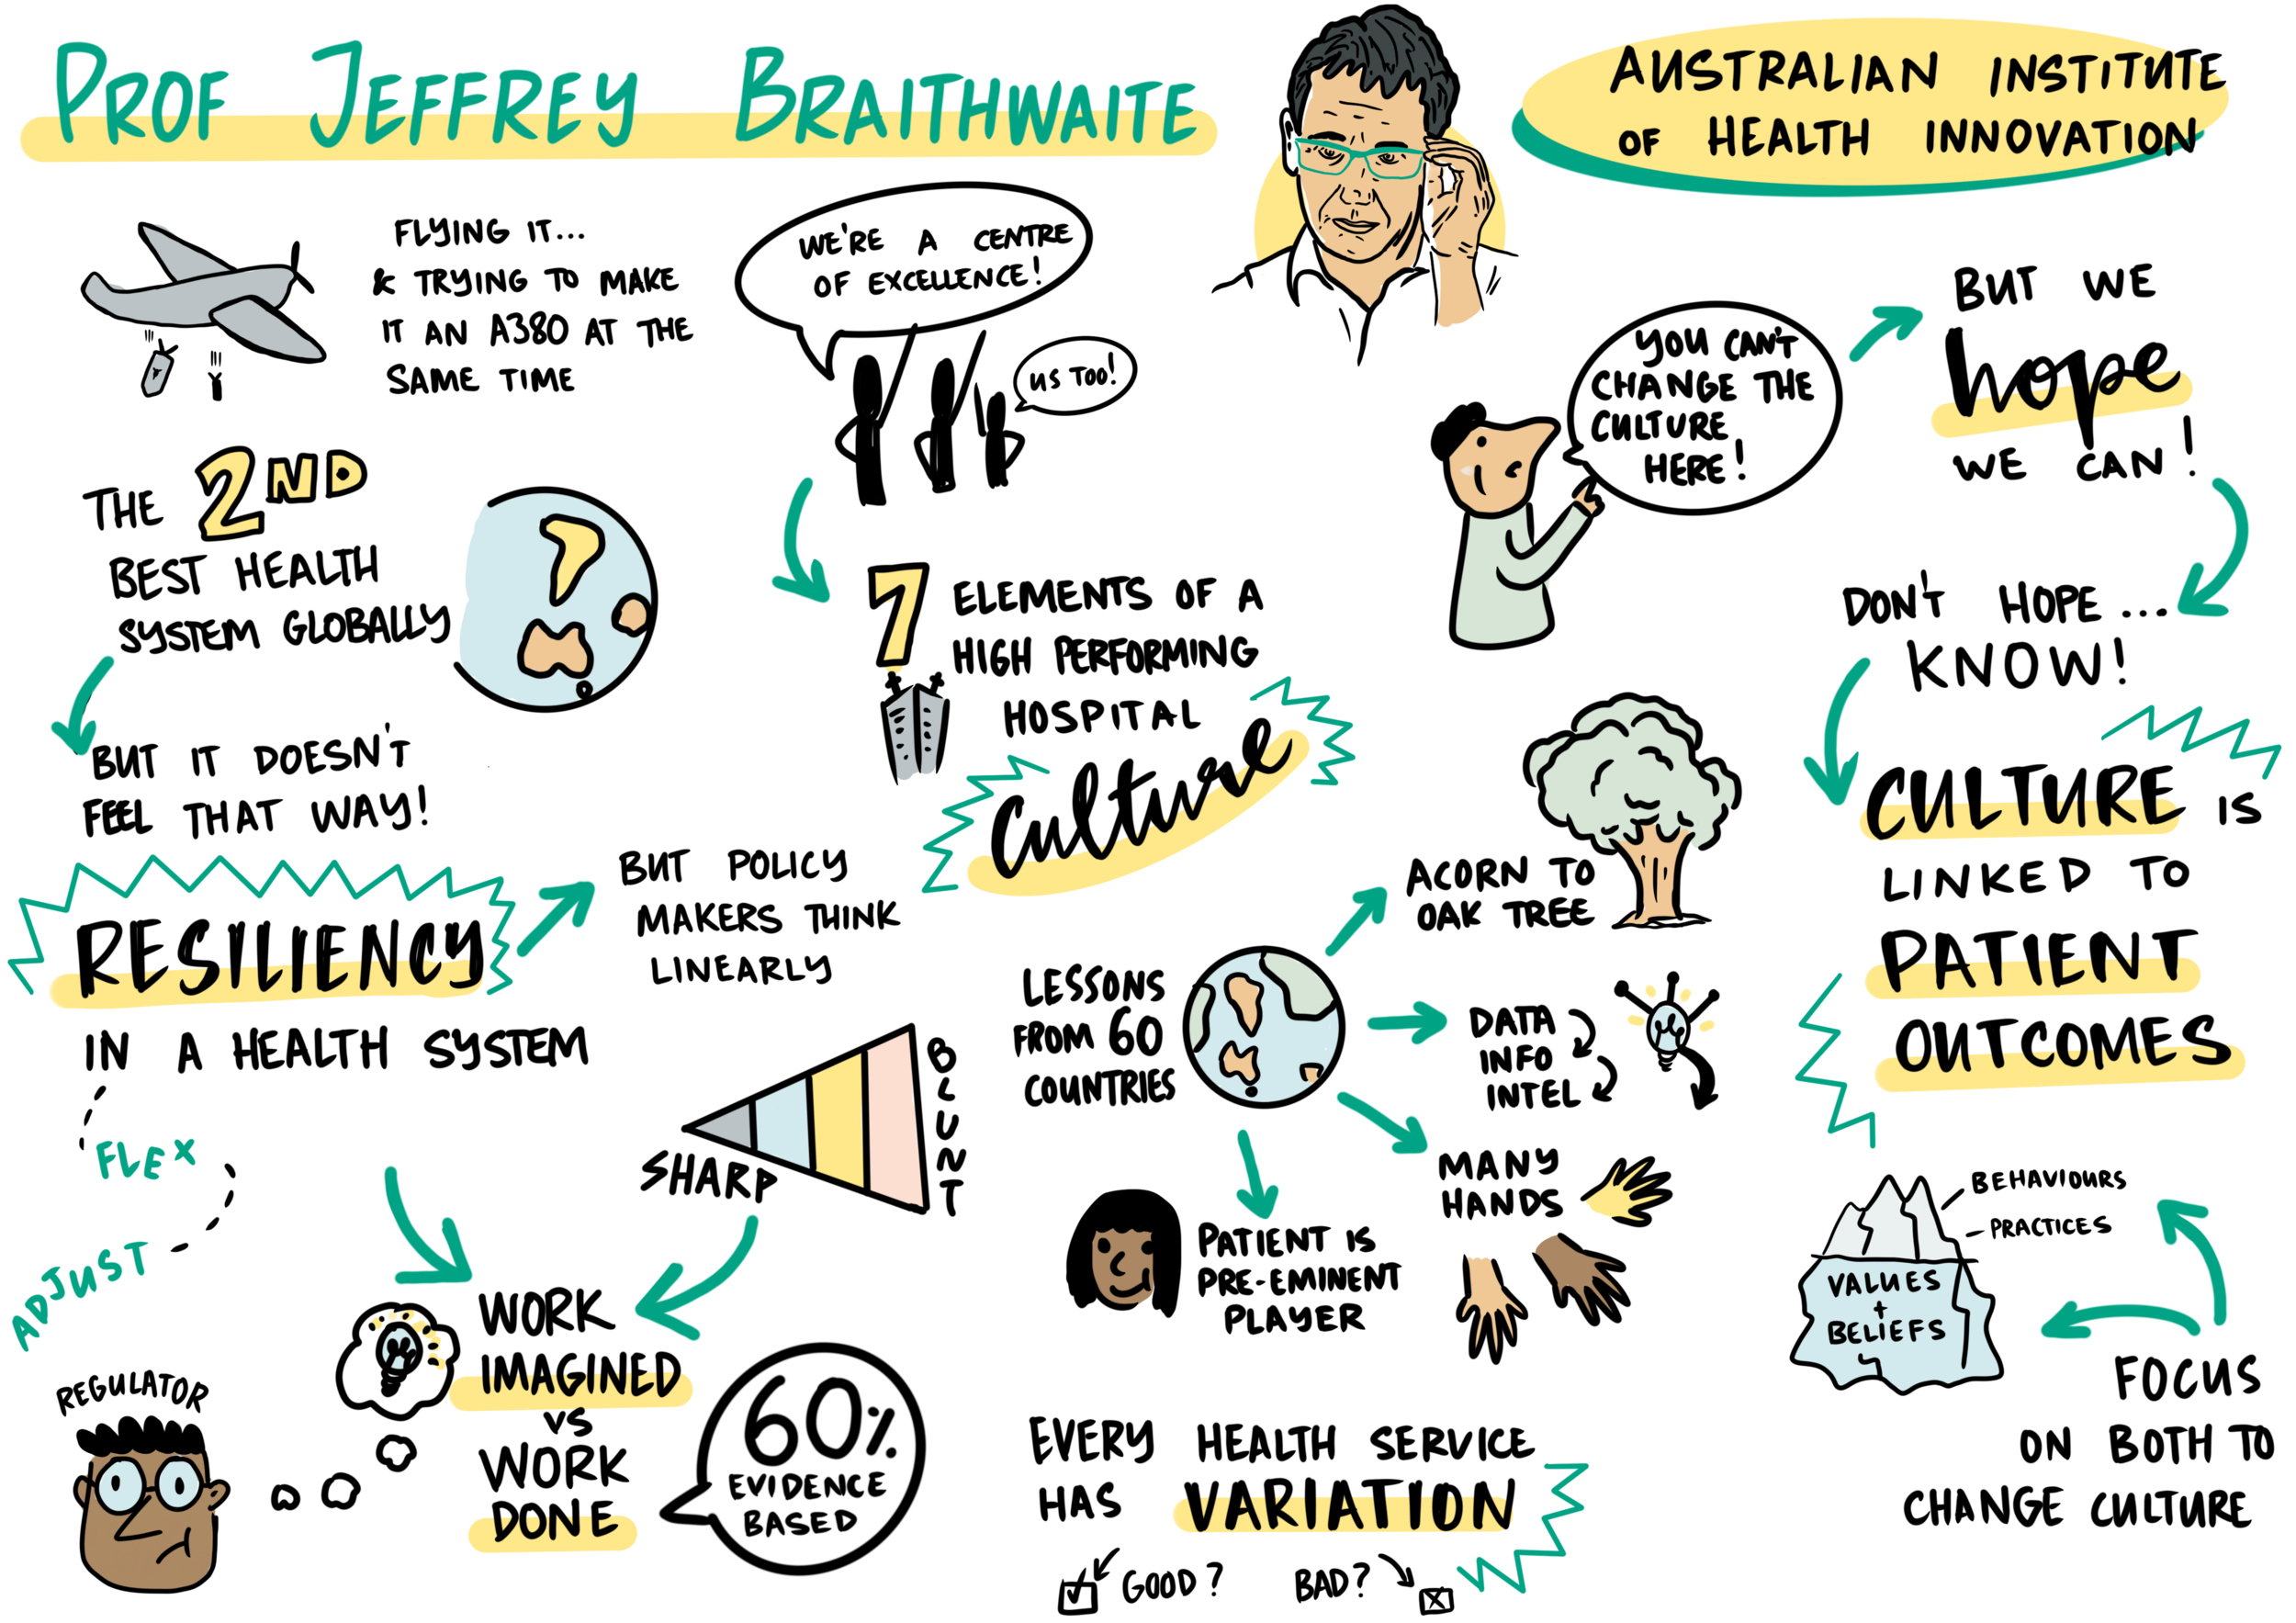 PROF JEFFREY BRAITHWAITE
AUSTRALIAN INSTITUTE
OF HEALTH INNOVATION
FLYING IT...
& TRYING TO MAKE
IT AN A380 AT THE
SAME TIME
THE 2ND
BEST HEALTH
SYSTEM GLOBALLY
BUT IT DOESN'T
FEEL THAT WAY!
RESILIENCY
IN A HEALTH SYSTEM
FLEX
ADJUST
BUT POLICY
MAKERS THINK
LINEARLY
SHARP
BLUNT
REGULATOR
WORK
IMAGINED
VS
WORK
DONE
60%
EVIDENCE
BASED
WE'RE A CENTRE
OF EXCELLENCE!
US TOO!
7 ELEMENTS OF A
HIGH PERFORMING
HOSPITAL
Culture
LESSONS
FROM 60
COUNTRIES
ACORN TO
OAK TREE
DATA
INFO
INTEL
MANY
HANDS
PATIENT IS
PRE-EMINENT
PLAYER
EVERY HEALTH SERVICE
HAS VARIATION
GOOD? BAD?
YOU CAN'T
CHANGE THE
CULTURE
HERE!
BUT WE
hope
WE CAN!
DON'T HOPE...
KNOW!
CULTURE IS
LINKED TO
PATIENT
OUTCOMES
BEHAVIOURS
- PRACTICES
VALUES
+
BELIEFS
FOCUS
ON BOTH TO
CHANGE CULTURE